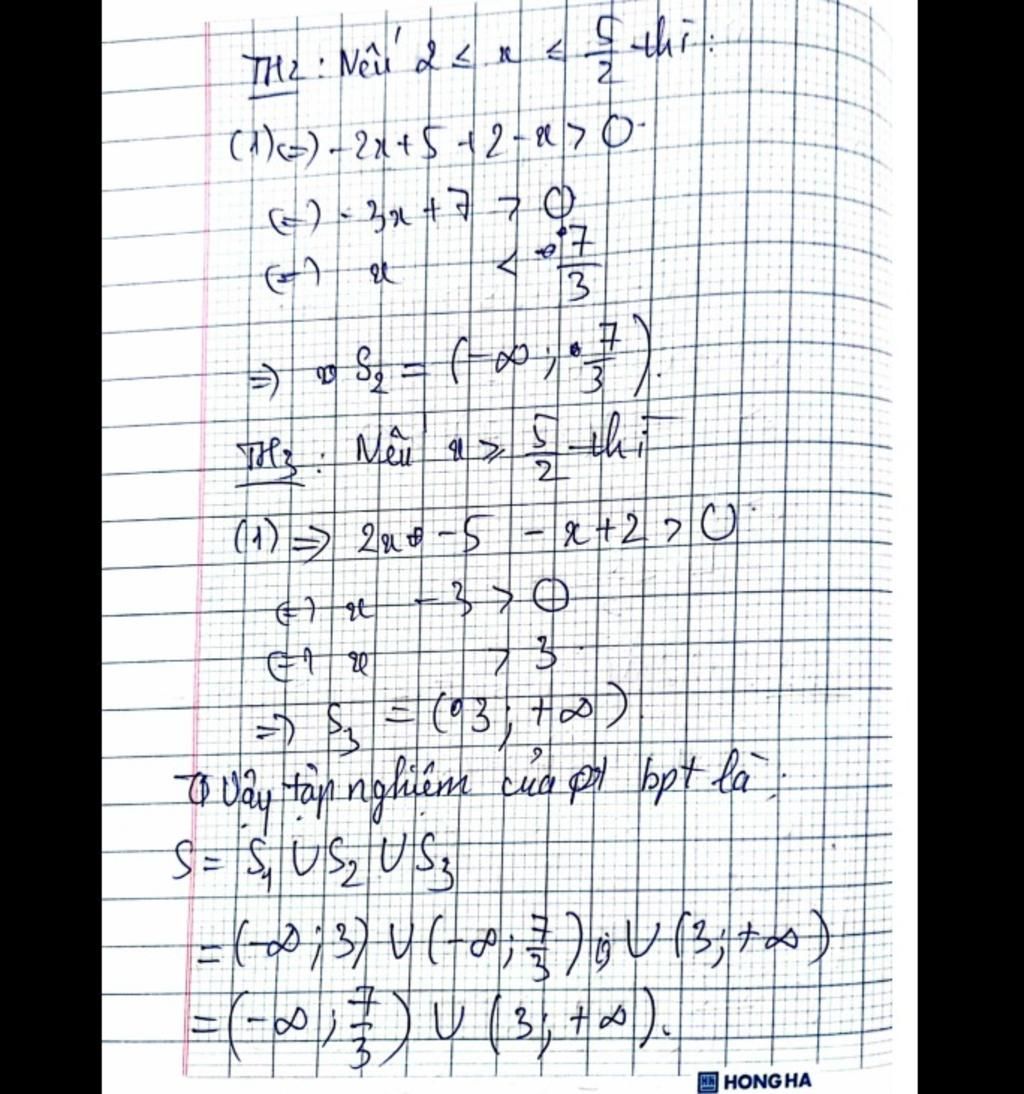 TH2: Nếu 2 ≤ x ≤ 5/2 thì:
(1) <=> -2x + 5 + 2 - x > 0
<=> -3x + 7 > 0
<=> x < 7/3
=> S₂ = (-∞; 7/3).
TH3: Nếu x ≥ 5/2 thì
(1) => 2x - 5 - x + 2 > 0
<=> x - 3 > 0
<=> x > 3
=> S₃ = (3; +∞)
Vậy tập nghiệm của pt bpt là:
S = S₁ ∪ S₂ ∪ S₃
= (-∞; 3) ∪ (-∞; 7/3) ∪ (3; +∞)
= (-∞; 7/3) ∪ (3; +∞).
HONG HA